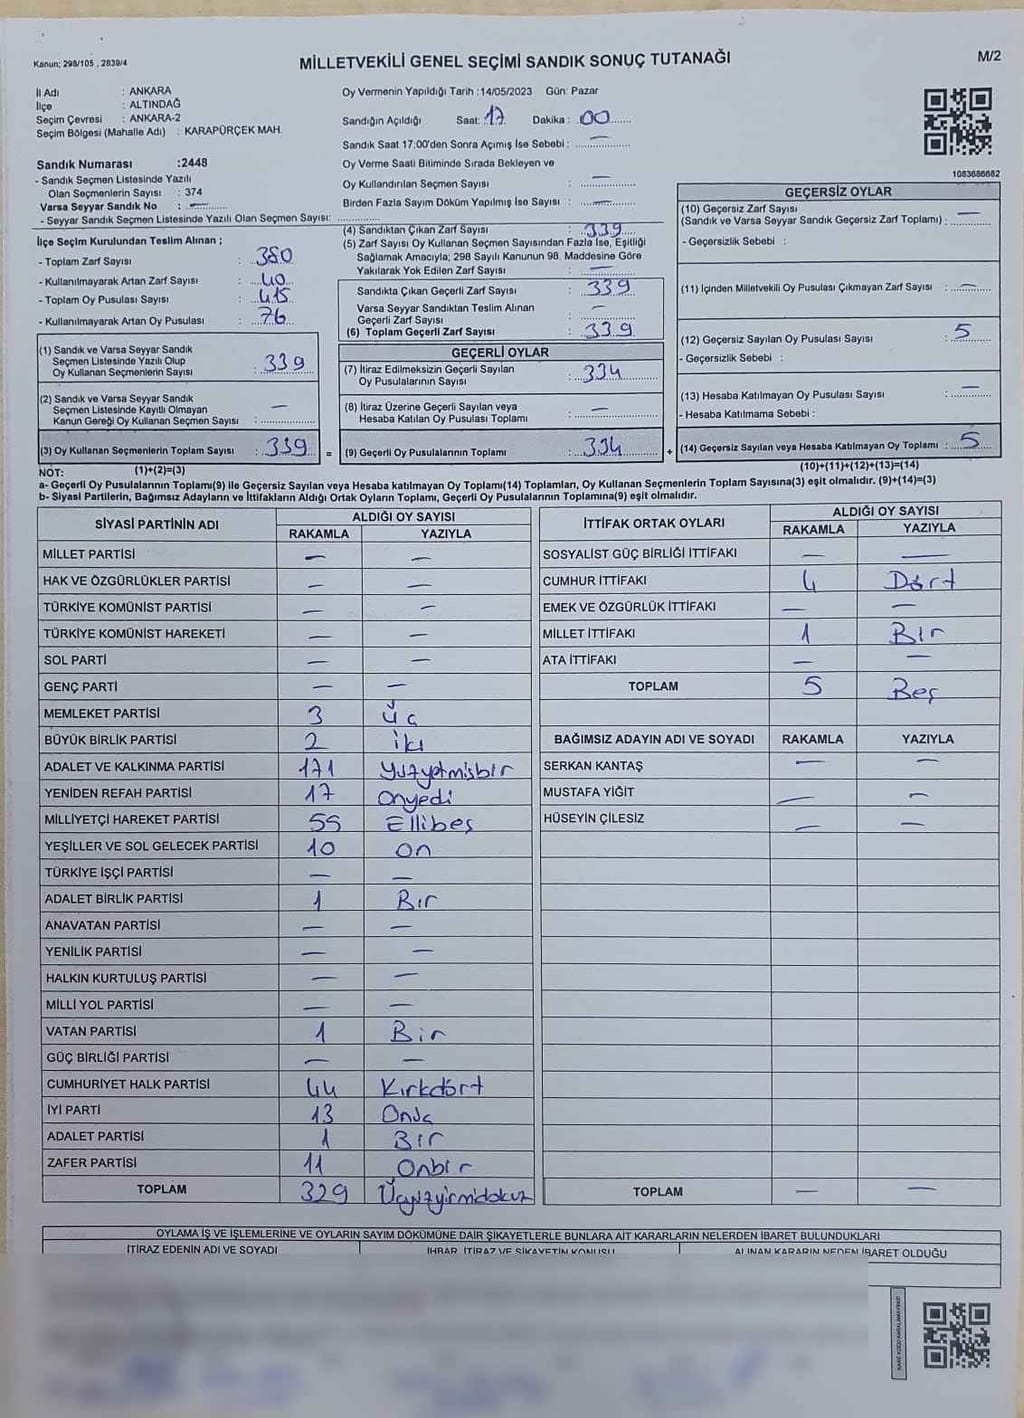 Kanun; 298/105 , 2839/4
MİLLETVEKİLİ GENEL SEÇİMİ SANDIK SONUÇ TUTANAĞI
M/2
İl Adı : ANKARA
İlçe : ALTINDAĞ
Seçim Çevresi : ANKARA-2
Seçim Bölgesi (Mahalle Adı) : KARAPÜRÇEK MAH.
Sandık Numarası :2448
- Sandık Seçmen Listesinde Yazılı
Olan Seçmenlerin Sayısı : 374
Varsa Seyyar Sandık No : —
- Seyyar Sandık Seçmen Listesinde Yazılı Olan Seçmen Sayısı:
Oy Vermenin Yapıldığı Tarih :14/05/2023 Gün: Pazar
Sandığın Açıldığı Saat: 17 Dakika : 00
Sandık Saat 17:00'den Sonra Açımış İse Sebebi : —
Oy Verme Saati Bitiminde Sırada Bekleyen ve
Oy Kullandırılan Seçmen Sayısı : —
Birden Fazla Sayım Döküm Yapılmış İse Sayısı : —
1083686682
İlçe Seçim Kurulundan Teslim Alınan ;
- Toplam Zarf Sayısı : 380
- Kullanılmayarak Artan Zarf Sayısı : 40
- Toplam Oy Pusulası Sayısı : 415
- Kullanılmayarak Artan Oy Pusulası : 76
(1) Sandık ve Varsa Seyyar Sandık
Seçmen Listesinde Yazılı Olup
Oy Kullanan Seçmenlerin Sayısı : 339
(2) Sandık ve Varsa Seyyar Sandık
Seçmen Listesinde Kayıtlı Olmayan
Kanun Gereği Oy Kullanan Seçmen Sayısı : —
(3) Oy Kullanan Seçmenlerin Toplam Sayısı : 339 =
(4) Sandıktan Çıkan Zarf Sayısı : 339
(5) Zarf Sayısı Oy Kullanan Seçmen Sayısından Fazla İse, Eşitliği
Sağlamak Amacıyla; 298 Sayılı Kanunun 98. Maddesine Göre
Yakılarak Yok Edilen Zarf Sayısı : —
Sandıkta Çıkan Geçerli Zarf Sayısı : 339
Varsa Seyyar Sandıktan Teslim Alınan
Geçerli Zarf Sayısı : —
(6) Toplam Geçerli Zarf Sayısı : 339
GEÇERLİ OYLAR
(7) İtiraz Edilmeksizin Geçerli Sayılan
Oy Pusulalarının Sayısı : 334
(8) İtiraz Üzerine Geçerli Sayılan veya
Hesaba Katılan Oy Pusulası Toplamı : —
(9) Geçerli Oy Pusulalarının Toplamı : 334 +
GEÇERSİZ OYLAR
(10) Geçersiz Zarf Sayısı —
(Sandık ve Varsa Seyyar Sandık Geçersiz Zarf Toplamı) :
- Geçersizlik Sebebi :
(11) İçinden Milletvekili Oy Pusulası Çıkmayan Zarf Sayısı : —
(12) Geçersiz Sayılan Oy Pusulası Sayısı : 5
- Geçersizlik Sebebi :
(13) Hesaba Katılmayan Oy Pusulası Sayısı : —
- Hesaba Katılmama Sebebi :
(14) Geçersiz Sayılan veya Hesaba Katılmayan Oy Toplamı : 5
NOT: (1)+(2)=(3) (10)+(11)+(12)+(13)=(14)
a- Geçerli Oy Pusulalarının Toplamı(9) ile Geçersiz Sayılan veya Hesaba katılmayan Oy Toplamı(14) Toplamları, Oy Kullanan Seçmenlerin Toplam Sayısına(3) eşit olmalıdır. (9)+(14)=(3)
b- Siyasi Partilerin, Bağımsız Adayların ve İttifakların Aldığı Ortak Oyların Toplamı, Geçerli Oy Pusulalarının Toplamına(9) eşit olmalıdır.
SİYASİ PARTİNİN ADI ALDIĞI OY SAYISI
RAKAMLA YAZIYLA
MİLLET PARTİSİ — —
HAK VE ÖZGÜRLÜKLER PARTİSİ — —
TÜRKİYE KOMÜNİST PARTİSİ — —
TÜRKİYE KOMÜNİST HAREKETİ — —
SOL PARTİ — —
GENÇ PARTİ — —
MEMLEKET PARTİSİ 3 Üç
BÜYÜK BİRLİK PARTİSİ 2 iki
ADALET VE KALKINMA PARTİSİ 171 Yüzyetmişbir
YENİDEN REFAH PARTİSİ 17 Onyedi
MİLLİYETÇİ HAREKET PARTİSİ 55 Ellibeş
YEŞİLLER VE SOL GELECEK PARTİSİ 10 on
TÜRKİYE İŞÇİ PARTİSİ — —
ADALET BİRLİK PARTİSİ 1 Bir
ANAVATAN PARTİSİ — —
YENİLİK PARTİSİ — —
HALKIN KURTULUŞ PARTİSİ — —
MİLLİ YOL PARTİSİ — —
VATAN PARTİSİ 1 Bir
GÜÇ BİRLİĞİ PARTİSİ — —
CUMHURİYET HALK PARTİSİ 44 Kırkdört
İYİ PARTİ 13 Onüç
ADALET PARTİSİ 1 Bir
ZAFER PARTİSİ 11 Onbir
TOPLAM 329 Üçyüzyirmidokuz
İTTİFAK ORTAK OYLARI ALDIĞI OY SAYISI
RAKAMLA YAZIYLA
SOSYALİST GÜÇ BİRLİĞİ İTTİFAKI — —
CUMHUR İTTİFAKI 4 Dört
EMEK VE ÖZGÜRLÜK İTTİFAKI — —
MİLLET İTTİFAKI 1 Bir
ATA İTTİFAKI — —
TOPLAM 5 Beş
BAĞIMSIZ ADAYIN ADI VE SOYADI RAKAMLA YAZIYLA
SERKAN KANTAŞ — —
MUSTAFA YİĞİT — —
HÜSEYİN ÇİLESİZ — —
TOPLAM — —
OYLAMA İŞ VE İŞLEMLERİNE VE OYLARIN SAYIM DÖKÜMÜNE DAİR ŞİKAYETLERLE BUNLARA AİT KARARLARIN NELERDEN İBARET BULUNDUKLARI
İTİRAZ EDENİN ADI VE SOYADI İHBAR, İTİRAZ VE ŞİKAYETİN KONUSU ALINAN KARARIN NEDEN İBARET OLDUĞU